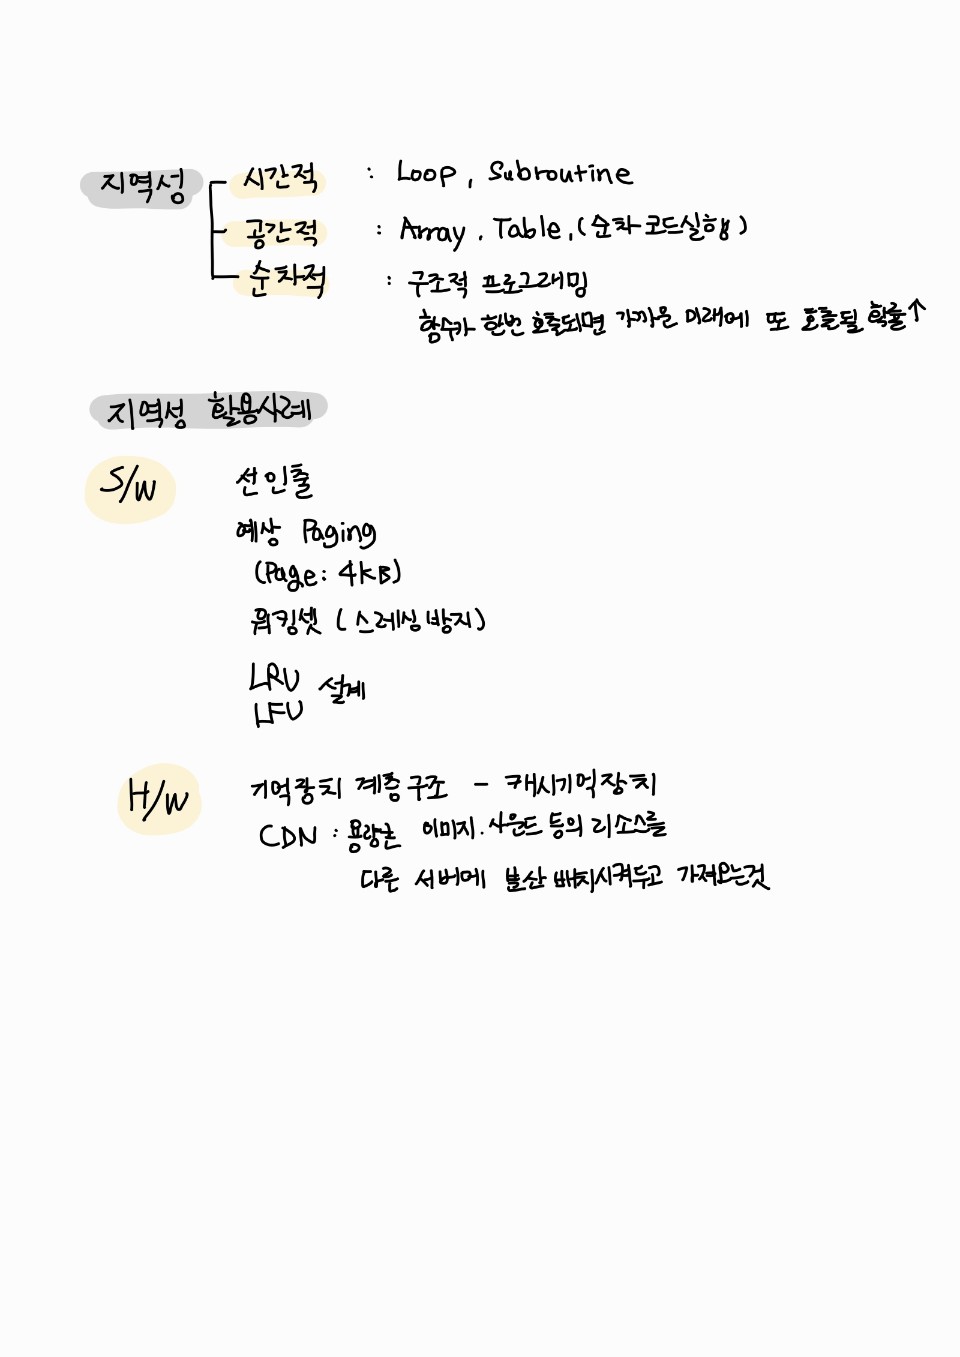 지역성
시간적 : Loop, Subroutine
공간적 : Array, Table, (순차코드실행)
순차적 : 구조적 프로그래밍
함수가 한번 호출되면 가까운 미래에 또 호출될 확률↑
지역성 활용사례
S/W 선인출
예상 Paging
(Page: 4KB)
워킹셋 (스레싱 방지)
LRU
LFU 설계
H/W 기억장치 계층구조 - 캐시기억장치
CDN : 용량큰 이미지, 사운드 등의 리소스를
다른 서버에 분산 배치시켜두고 가져오는것